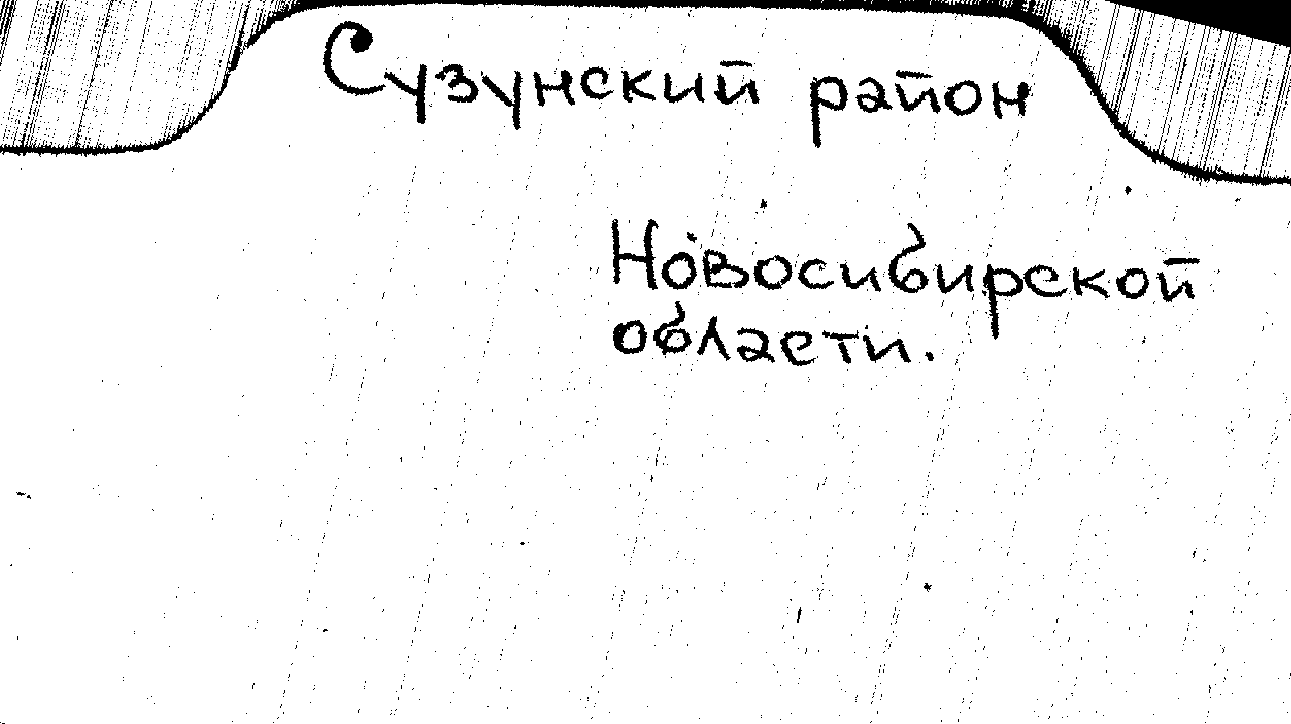 Сузунский район
Новосибирской
области.